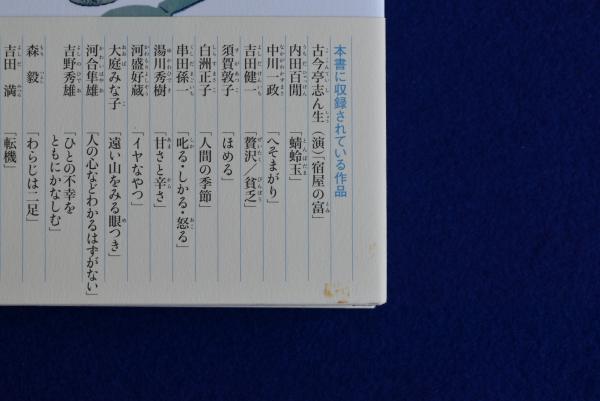 本書に収録されている作品
古今亭志ん生（演）「宿屋の富」
内田百閒「蜻蛉玉」
中川一政「へそまがり」
吉田健一「贅沢／貧乏」
須賀敦子「ほめる」
白洲正子「人間の季節」
串田孫一「叱る・しかる・怒る」
湯川秀樹「甘さと辛さ」
河盛好蔵「イヤなやつ」
大庭みな子「遠い山をみる眼つき」
河合隼雄「人の心などわかるはずがない」
吉野秀雄「ひとの不幸を
ともにかなしむ」
森 毅「わらじは二足」
吉田 満「転機」